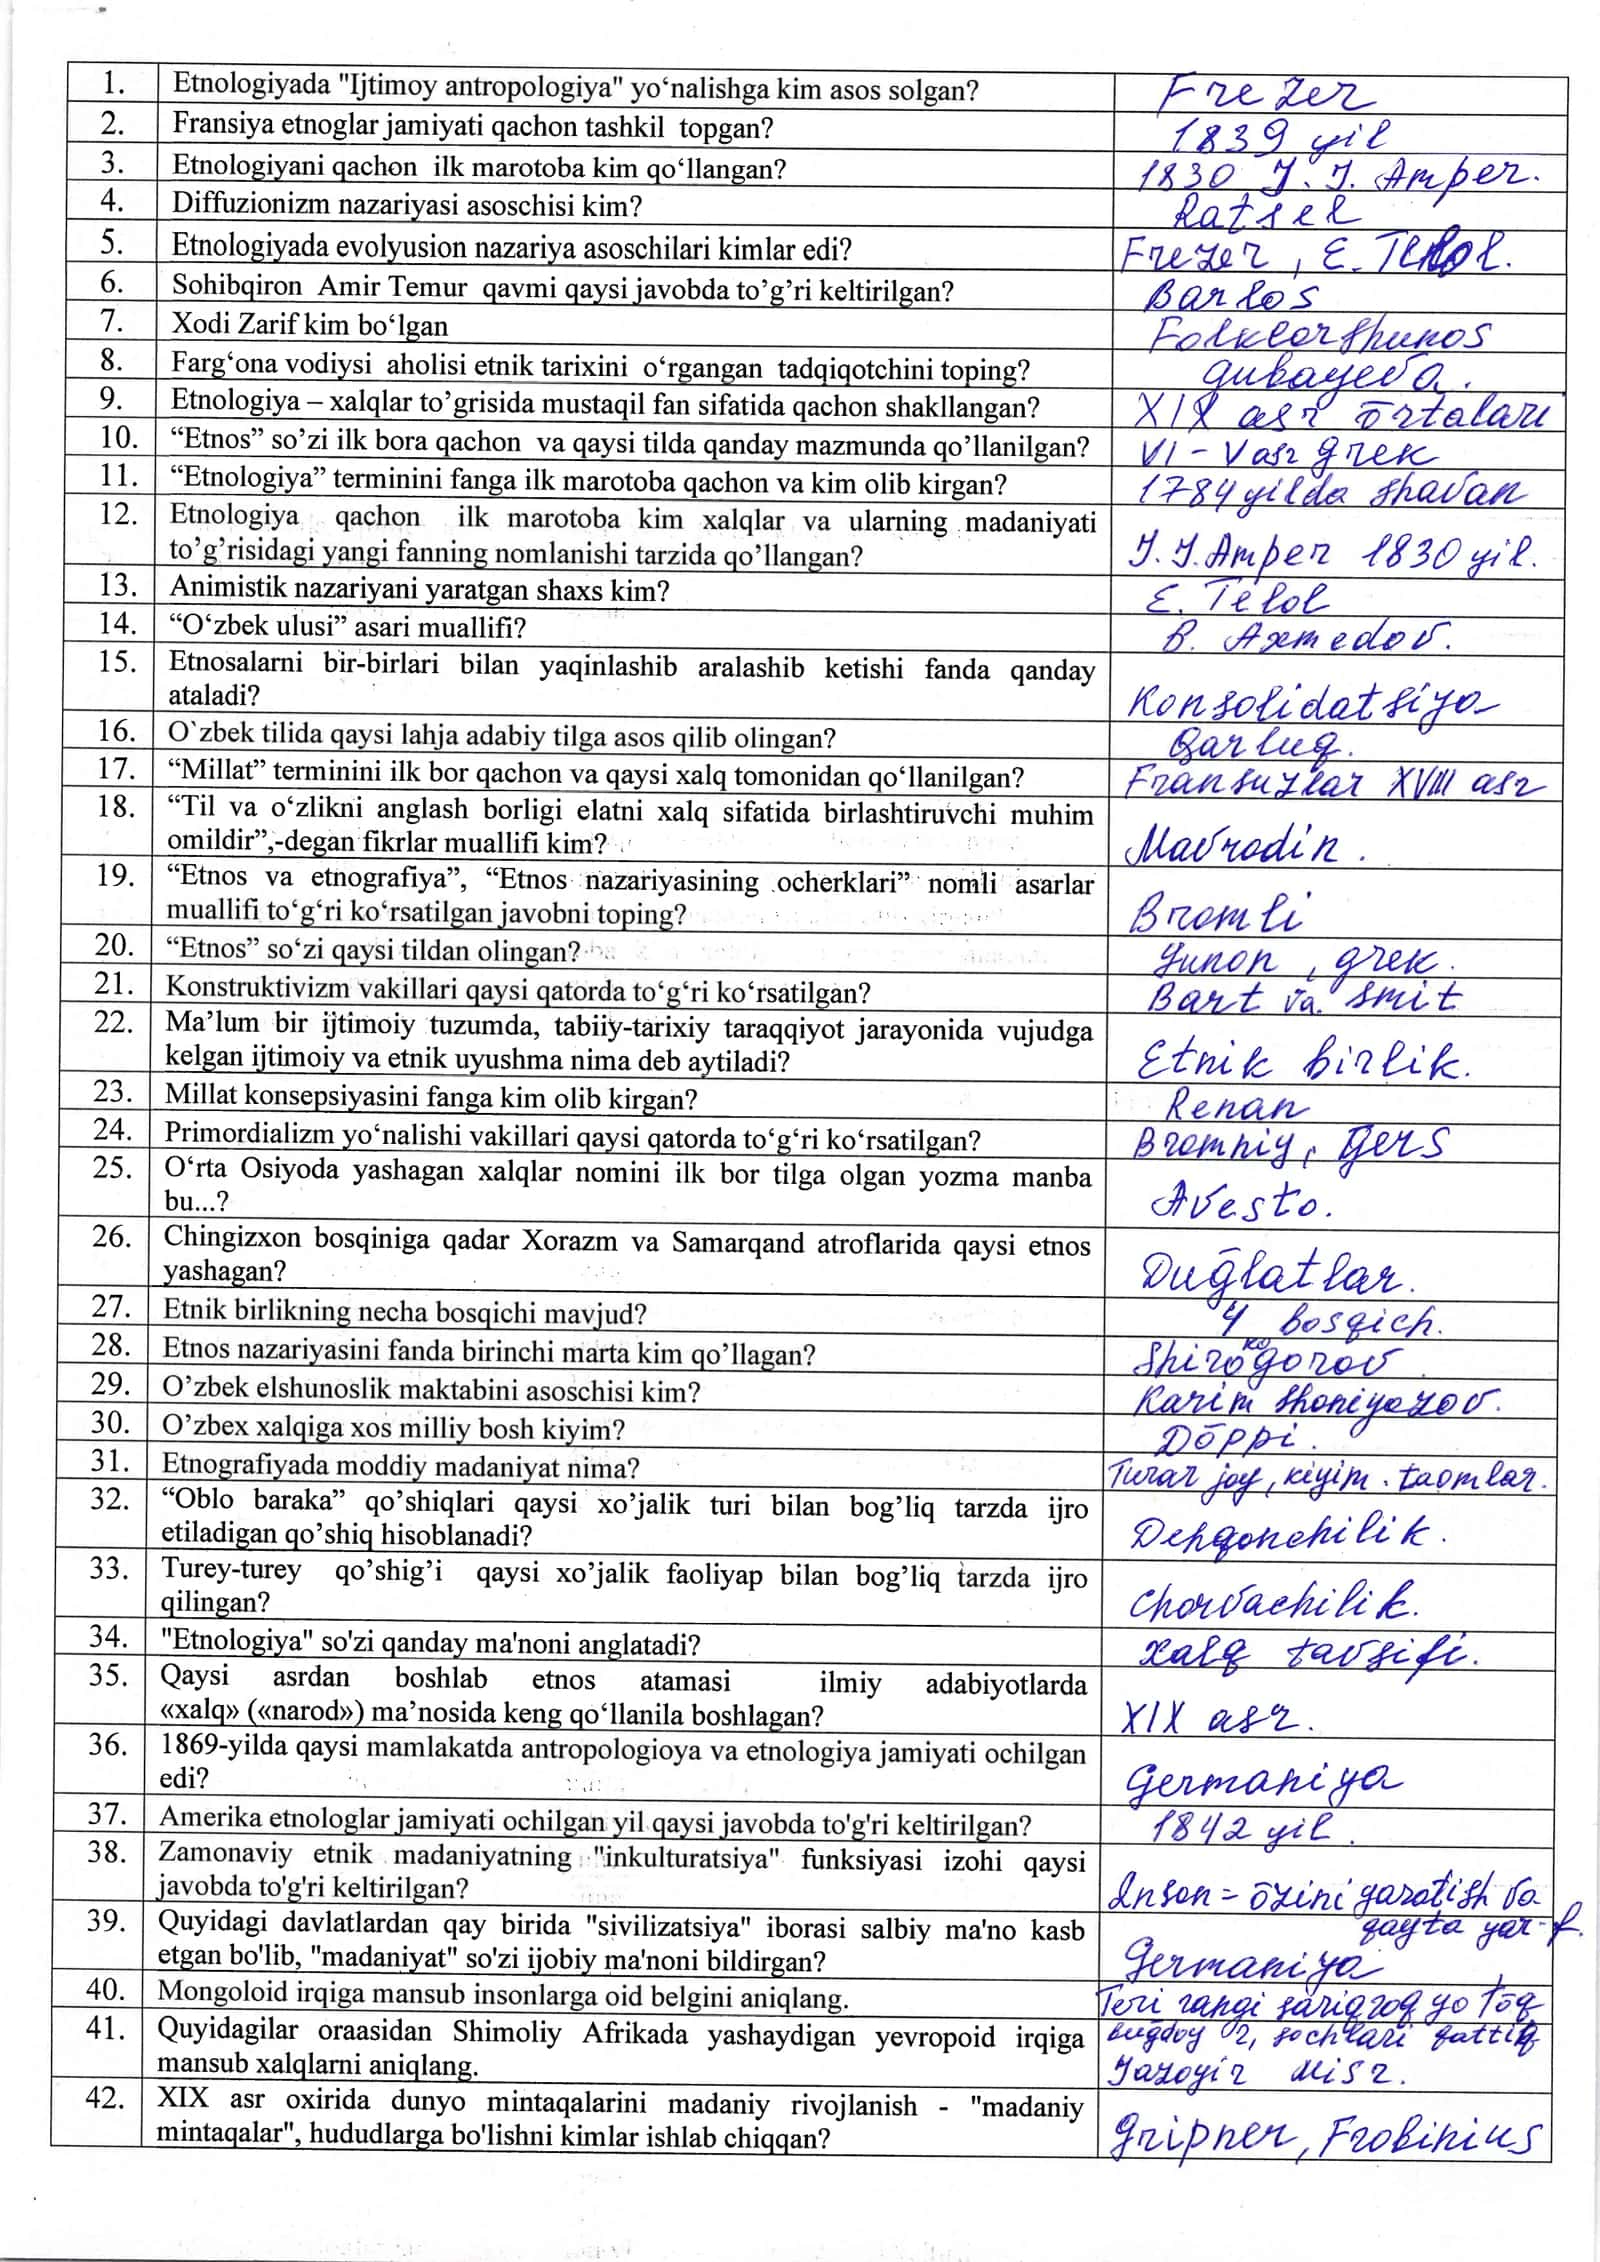 1. Etnologiyada "Ijtimoy antropologiya" yo‘nalishga kim asos solgan? Frezer
2. Fransiya etnoglar jamiyati qachon tashkil topgan? 1839 yil
3. Etnologiyani qachon ilk marotoba kim qo‘llangan? 1830 J. J. Amper.
4. Diffuzionizm nazariyasi asoschisi kim? Ratsel
5. Etnologiyada evolyusion nazariya asoschilari kimlar edi? Frezer, E. Telol.
6. Sohibqiron Amir Temur qavmi qaysi javobda to’g’ri keltirilgan? Barlos
7. Xodi Zarif kim bo‘lgan Folklorshunos
8. Farg‘ona vodiysi aholisi etnik tarixini o‘rgangan tadqiqotchini toping? gubayeva.
9. Etnologiya – xalqlar to’grisida mustaqil fan sifatida qachon shakllangan? XIX asr ōrtalari
10. “Etnos” so’zi ilk bora qachon va qaysi tilda qanday mazmunda qo’llanilgan? VI - V asr grek
11. “Etnologiya” terminini fanga ilk marotoba qachon va kim olib kirgan? 1784 yilda shavan
12. Etnologiya qachon ilk marotoba kim xalqlar va ularning madaniyati
to’g’risidagi yangi fanning nomlanishi tarzida qo’llangan? J. J. Amper 1830 yil.
13. Animistik nazariyani yaratgan shaxs kim? E. Telol
14. “O‘zbek ulusi” asari muallifi? B. Axmedov.
15. Etnosalarni bir-birlari bilan yaqinlashib aralashib ketishi fanda qanday
ataladi? Konsolidatsiya
16. O`zbek tilida qaysi lahja adabiy tilga asos qilib olingan? Qarluq.
17. “Millat” terminini ilk bor qachon va qaysi xalq tomonidan qo‘llanilgan? Fransuzlar XVIII asr
18. “Til va o‘zlikni anglash borligi elatni xalq sifatida birlashtiruvchi muhim
omildir”,-degan fikrlar muallifi kim? Mavrodin.
19. “Etnos va etnografiya”, “Etnos nazariyasining ocherklari” nomli asarlar
muallifi to‘g‘ri ko‘rsatilgan javobni toping? Bromli
20. “Etnos” so‘zi qaysi tildan olingan? Yunon, grek.
21. Konstruktivizm vakillari qaysi qatorda to‘g‘ri ko‘rsatilgan? Bart va smit
22. Ma’lum bir ijtimoiy tuzumda, tabiiy-tarixiy taraqqiyot jarayonida vujudga
kelgan ijtimoiy va etnik uyushma nima deb aytiladi? Etnik birlik.
23. Millat konsepsiyasini fanga kim olib kirgan? Renan
24. Primordializm yo‘nalishi vakillari qaysi qatorda to‘g‘ri ko‘rsatilgan? Bromniy, Gers
25. O‘rta Osiyoda yashagan xalqlar nomini ilk bor tilga olgan yozma manba
bu...? Avesto.
26. Chingizxon bosqiniga qadar Xorazm va Samarqand atroflarida qaysi etnos
yashagan? Duḡlatlar.
27. Etnik birlikning necha bosqichi mavjud? 4 bosqich.
28. Etnos nazariyasini fanda birinchi marta kim qo’llagan? Shirokogorov
29. O’zbek elshunoslik maktabini asoschisi kim? Karim Shoniyozov.
30. O’zbex xalqiga xos milliy bosh kiyim? Dōppi.
31. Etnografiyada moddiy madaniyat nima? Turar joy, kiyim. taomlar.
32. “Oblo baraka” qo’shiqlari qaysi xo’jalik turi bilan bog’liq tarzda ijro
etiladigan qo’shiq hisoblanadi? Dehqonchilik.
33. Turey-turey qo’shig’i qaysi xo’jalik faoliyap bilan bog’liq tarzda ijro
qilingan? Chorvachilik.
34. "Etnologiya" so'zi qanday ma'noni anglatadi? Xalq tavsifi.
35. Qaysi asrdan boshlab etnos atamasi ilmiy adabiyotlarda
«xalq» («narod») ma’nosida keng qo‘llanila boshlagan? XIX asr.
36. 1869-yilda qaysi mamlakatda antropologioya va etnologiya jamiyati ochilgan
edi? Germaniya
37. Amerika etnologlar jamiyati ochilgan yil qaysi javobda to'g'ri keltirilgan? 1842 yil.
38. Zamonaviy etnik madaniyatning "inkulturatsiya" funksiyasi izohi qaysi
javobda to'g'ri keltirilgan? Inson = ōzini yaratish va
qayta yar-f.
39. Quyidagi davlatlardan qay birida "sivilizatsiya" iborasi salbiy ma'no kasb
etgan bo'lib, "madaniyat" so'zi ijobiy ma'noni bildirgan? Germaniya
40. Mongoloid irqiga mansub insonlarga oid belgini aniqlang. Teri rangi sariqroq yo tōq
buḡdoy r, sochlari qattiq
41. Quyidagilar oraasidan Shimoliy Afrikada yashaydigan yevropoid irqiga
mansub xalqlarni aniqlang. Jazoyir Misr.
42. XIX asr oxirida dunyo mintaqalarini madaniy rivojlanish - "madaniy
mintaqalar", hududlarga bo'lishni kimlar ishlab chiqqan? Gripner, Frobinius